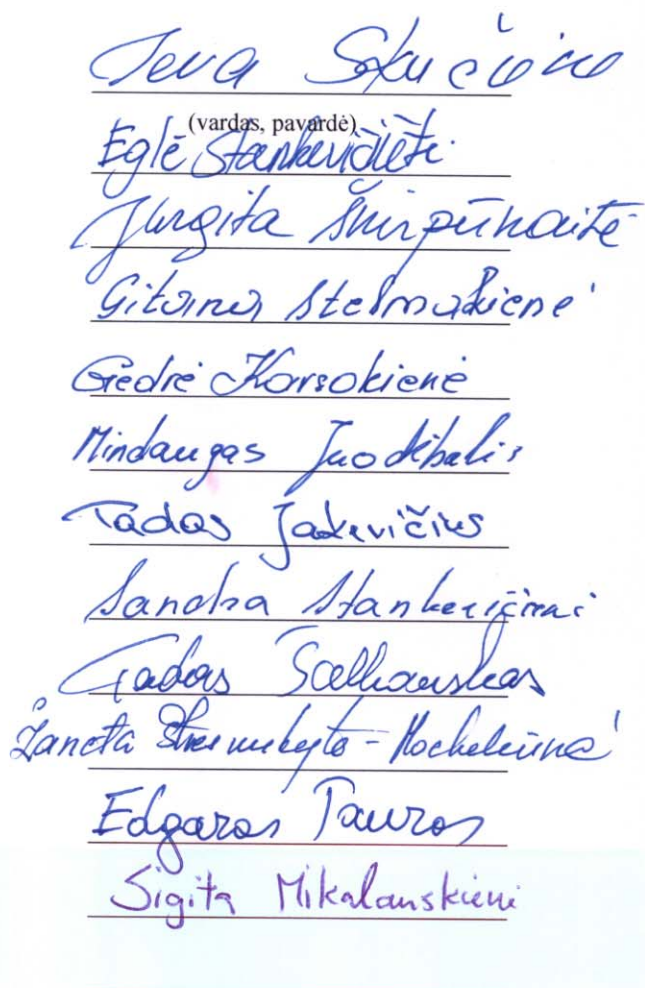 Ieva
(vardas, pavardė)
Eglė Stankevičiūtė
Jurgita
Gitana Stelmokienė
Giedrė Korsokienė
Mindaugas Juodėbalis
Tadas Jakevičius
Sandra Stankevičienė
Tadas Šalkauskas
Žaneta
Edgaras Tauras
Sigita Mikalauskienė